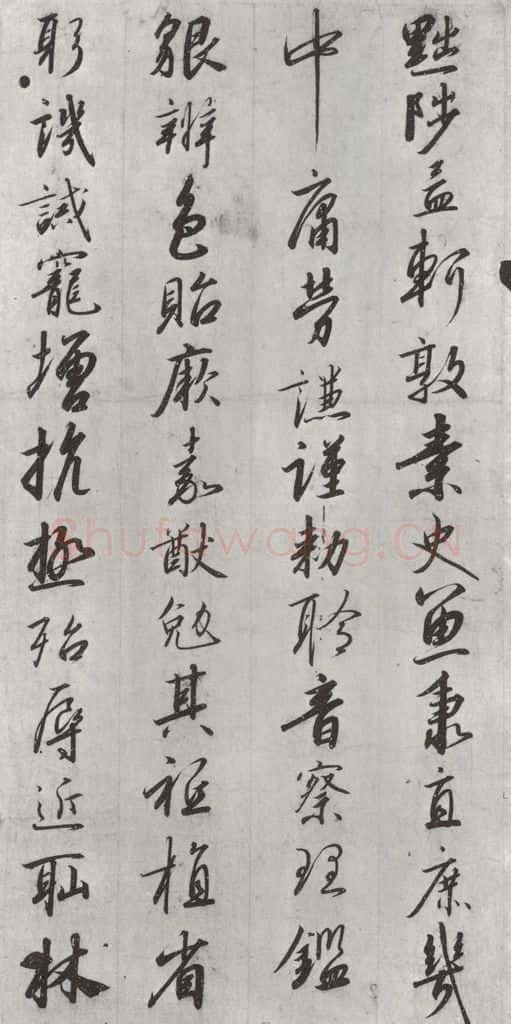 黜陟孟軻敦素史魚秉直庶幾
中庸勞謙謹勑聆音察理鑑
貌辨色貽厥嘉猷勉其祗植省
躬譏誡寵增抗極殆辱近耻林
Shufawang.CN